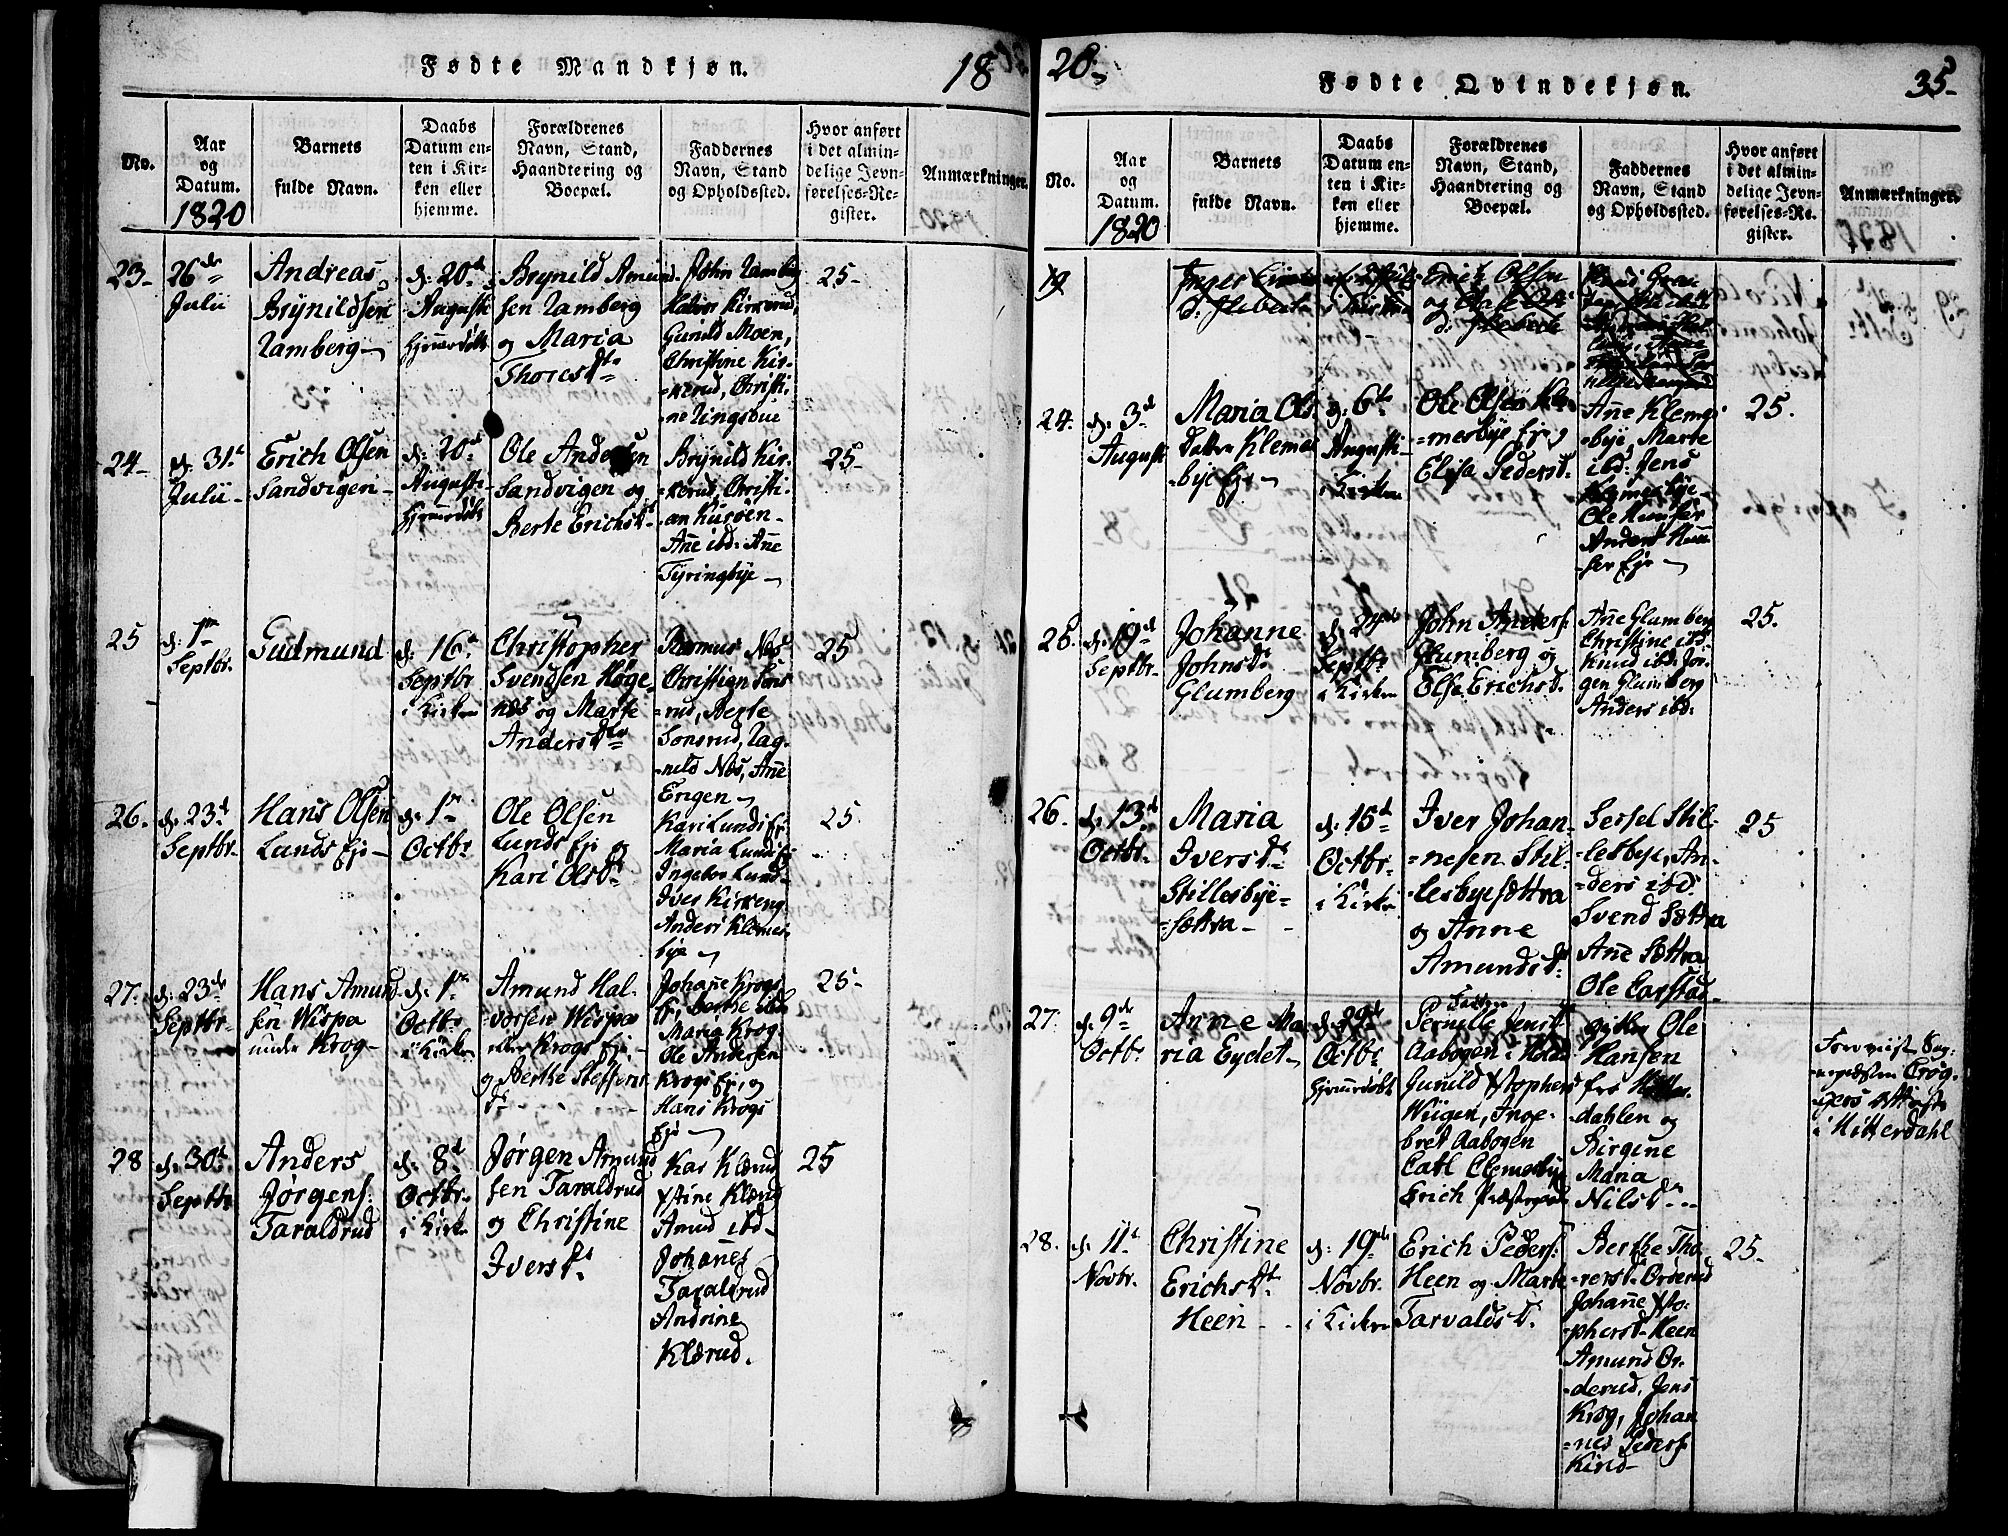 Fødte Mandkjøn.
18
No.
Aar
og
Datum.
1820
Barnets
fulde Navn.
Daabs
Datum en-
ten i Kir-
ken eller
hjemme.
Forældrenes
Navn, Stand,
Haandtering og
Boepæl.
Faddernes
Navn, Stand
og Opholdssted.
Hvor anført
i det almin-
delige Jevn-
førelses-Re-
gister.
Anmærkninger.
23-
26de
Julii
Andreas
Brynildsen
Ramberg
d: 20d
Augusti
hjemmedøbt
Brynild Amund
sen Ramberg
og Maria
Thoresdt
John Ramberg
Gunild Moen,
Christine Kir-
kerud, Christi-
ne Ringsbye
25-
24-
d: 31t
Julii
Erich Olsen
Sandvigen
d: 20d
Augusti
hjemmedøbt
Ole Andersen
Sandvigen og
Berte Erichsdt
Brynild Kir-
kerud, Christi-
an
Ane ibd: Ane
Tyringbye
25-
25
d: 1ste
Septbr.
Gudmund
d: 16d
Septbr
i Kirken
Christopher
Svendsen Høge-
næs og Marte
Andersdtr
Rasmus Næs
Christian Søns
rud, Berte
Sønsrud, Rag-
nild Næs, Ane
Engen
25
26.
d: 23d
Septbr.
Hans Olsen
Lunds Eje
d: 1ste
Octbr.
Ole Olsen
Lunds Eje og
Kari Olsdt
Kari Lunds Ej
Maria Lunds Ej
Ingebor Lund
Iver Kirkeng
Anders Klemes-
bye
25
27.
d: 23de
Septbr
Hans Amund-
sen Wispa
under Krog
d: 1ste
Octbr.
i Kirken
Amund Hal-
vorsen Wispa
eller Krogs Eje
og Berthe Steffens
dt
Johane Krogs
Ej, Berthe ibd
Maria Krog
Ole Andersen
Krogs Ej, og
Hans Krogs
Eje
25-
28
d: 30t
Septbr
Anders
Jørgens:
Taraldrud
d: 8d
Octbr.
i Kirken
Jørgen Amund
sen Taraldrud
og Christine
Iversdt
Kari Klærud
Xstine Klærud
Amund ibd
Johanes
Taraldrud
Andrine
Klærud.
25
20-
Fødte Qvindekjøn.
35-
No.
Aar
og
Datum.
1820
Barnets
fulde Navn.
Daabs
Datum en-
ten i Kir-
ken eller
hjemme.
Forældrenes
Navn, Stand,
Haandtering og
Boepæl.
Faddernes
Navn, Stand
og Opholdssted.
Hvor anført
i det almin-
delige Jevn-
førelses-Re-
gister.
Anmærkninger.
Inger
Erich Olsen
24.
d: 3d
August
Maria Ols
Datter Klemes
bye Eje
d: 6te
Augusti
i Kirken
Ole Olsen Kle-
mesbye Ej og
Elisa Pedersdt
Ane Klemes-
bye, Marte
ibd: Jens
Klemesbye
Ole Hunsør
Anders Hun
sør Eje
25.
25.
d: 19d
Septbr.
Johanne
Johnsdt
Glumberg
d: 24de
Septbr
i Kirken
John Anders:
Glumberg og
Else Erichsdt
Ane Glumberg
Christine ibd
Knud ibd: Jør-
gen Glumberg
Anders ibd:
25.
26.
d: 13d
Octbr.
Maria
Iversdt
Stillesbye-
sættra
d: 15d
Octbr.
i Kirken
Iver Johan-
nesen Stil-
lesbyesættra
og Anne
Amundsdt
Sersel Stil-
lesbye, An-
ders ibd:
Svend Sættra
Ane Sættra
Ole Earstad
25
27.
d: 9de
Octbr.
Anne Ma
ria Eydet
d: 29d
Octbr.
hjemmedøbt
Faddere
Pernille Jensdt
Aabogen i Hols
Gunild Xstophers
Wiigen, Inge-
bret Aabogen
Carl Clemesbye
Erich Præstegaard
Ole
Hansen
fra Hitter-
dahlen og
Birgine
Maria
Nilsdt
Sog-
nepræsten Crøg-
gers Attest
i Hitterdahl
28.
d: 11t
Novbr.
Christine
Erichsdt
Heen
d: 19de
Novbr.
i Kirken
Erich Peders:
Heen og Marte
Tarvaldsdt.
Berthe Tho-
rersdt Orderud
Johane Xsto-
phersdt Heen
Amund Or-
derud, Jens
Krog, Johan
nes Peders:
Kind
25-